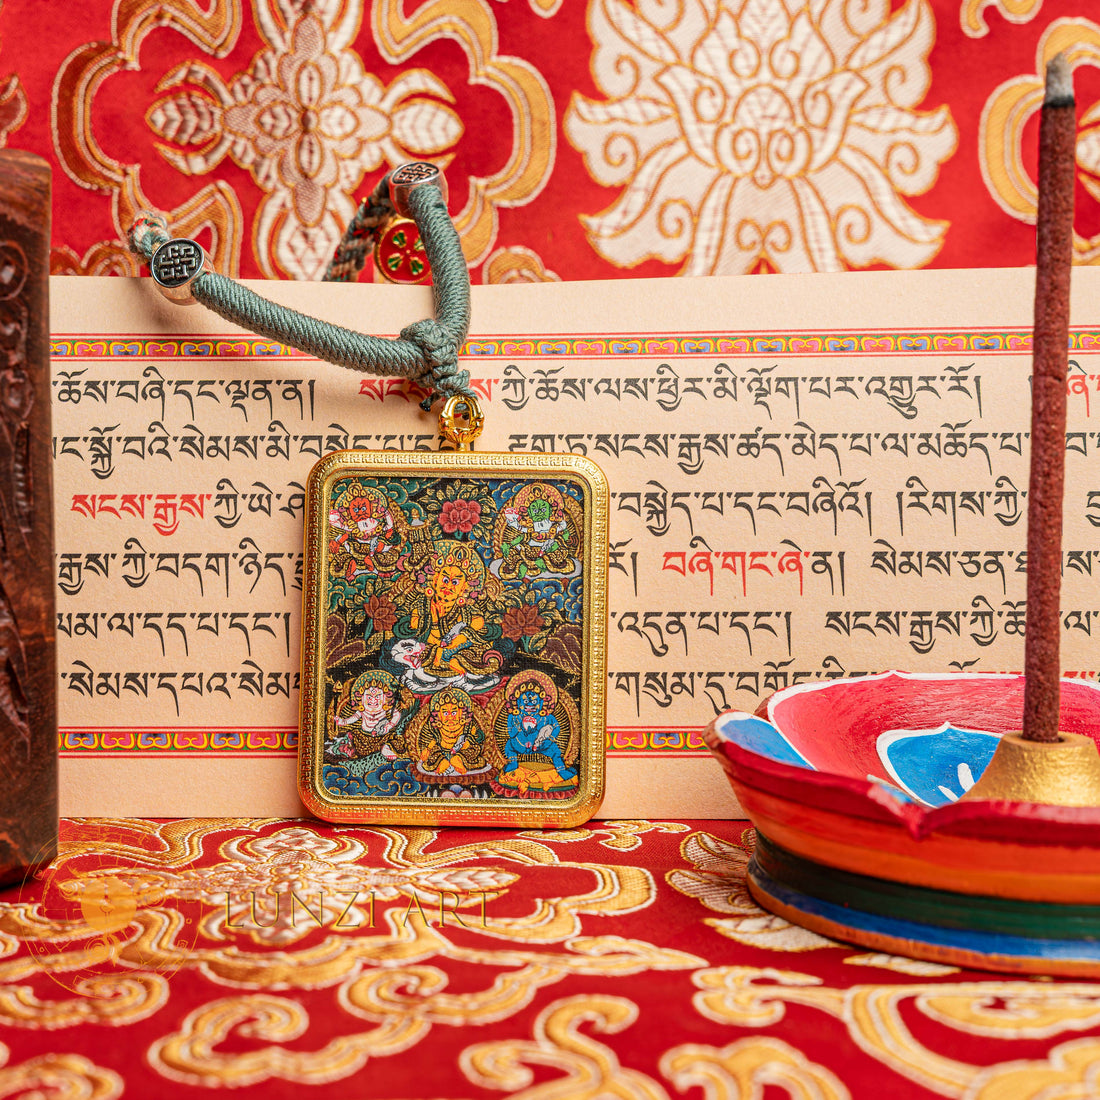 ཆོས་བཞི་དང་ལྡན་ན། སངས་ ས་ཀྱི་ཆོས་ལས་ཕྱིར་མི་ལྡོག་པར་འགྱུར་རོ།
དང་སྐྱོ་བའི་སེམས་མི་བསྐྱེད་པ་དང་ རྟག་ཏུ་སངས་རྒྱས་ཚད་མེད་པ་ལ་མཆོད་པ་
སངས་རྒྱས་ཀྱི་ཡེ་ བསྐྱེད་པ་དང་བཞིའོ། །རིགས་ཀྱི་
རྒྱས་ཀྱི་བདག་ཉིད་ རོ། བཞི་གང་ཞེ་ན། སེམས་ཅན་ ས་
པམ་ལ་དད་པ་དང་། འདུན་པ་དང་། སངས་རྒྱས་ཀྱི་ཆོ ལ་
སེམས་དཔའ་སེམས་ གསུམ་དུ་བགོ
LUNZI ART